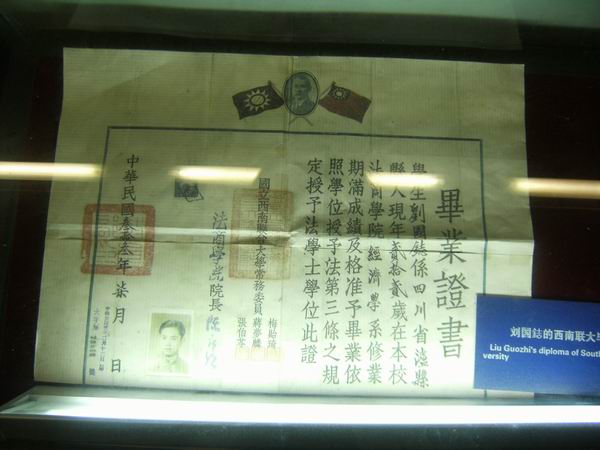 畢業證書
學生劉國鋕係四川省瀘縣
縣人現年貳拾貳歲在本校
法商學院經濟學系修業
期滿成績及格准予畢業依
照學位授予法第三條之規
定授予法學士學位此證
國立西南聯合大學常務委員
梅貽琦
蔣夢麟
張伯苓
法商學院院長
中華民國叁拾叁年柒月 日
刘国鋕的西南联大毕
Liu Guozhi's diploma of South
versity